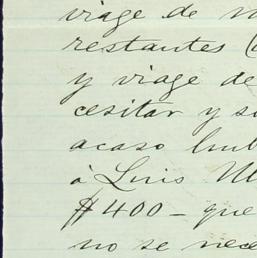 viage de
restantes (
y viage de
cesitar y s
acaso hub
á Luis M
$400 – que
no se nece